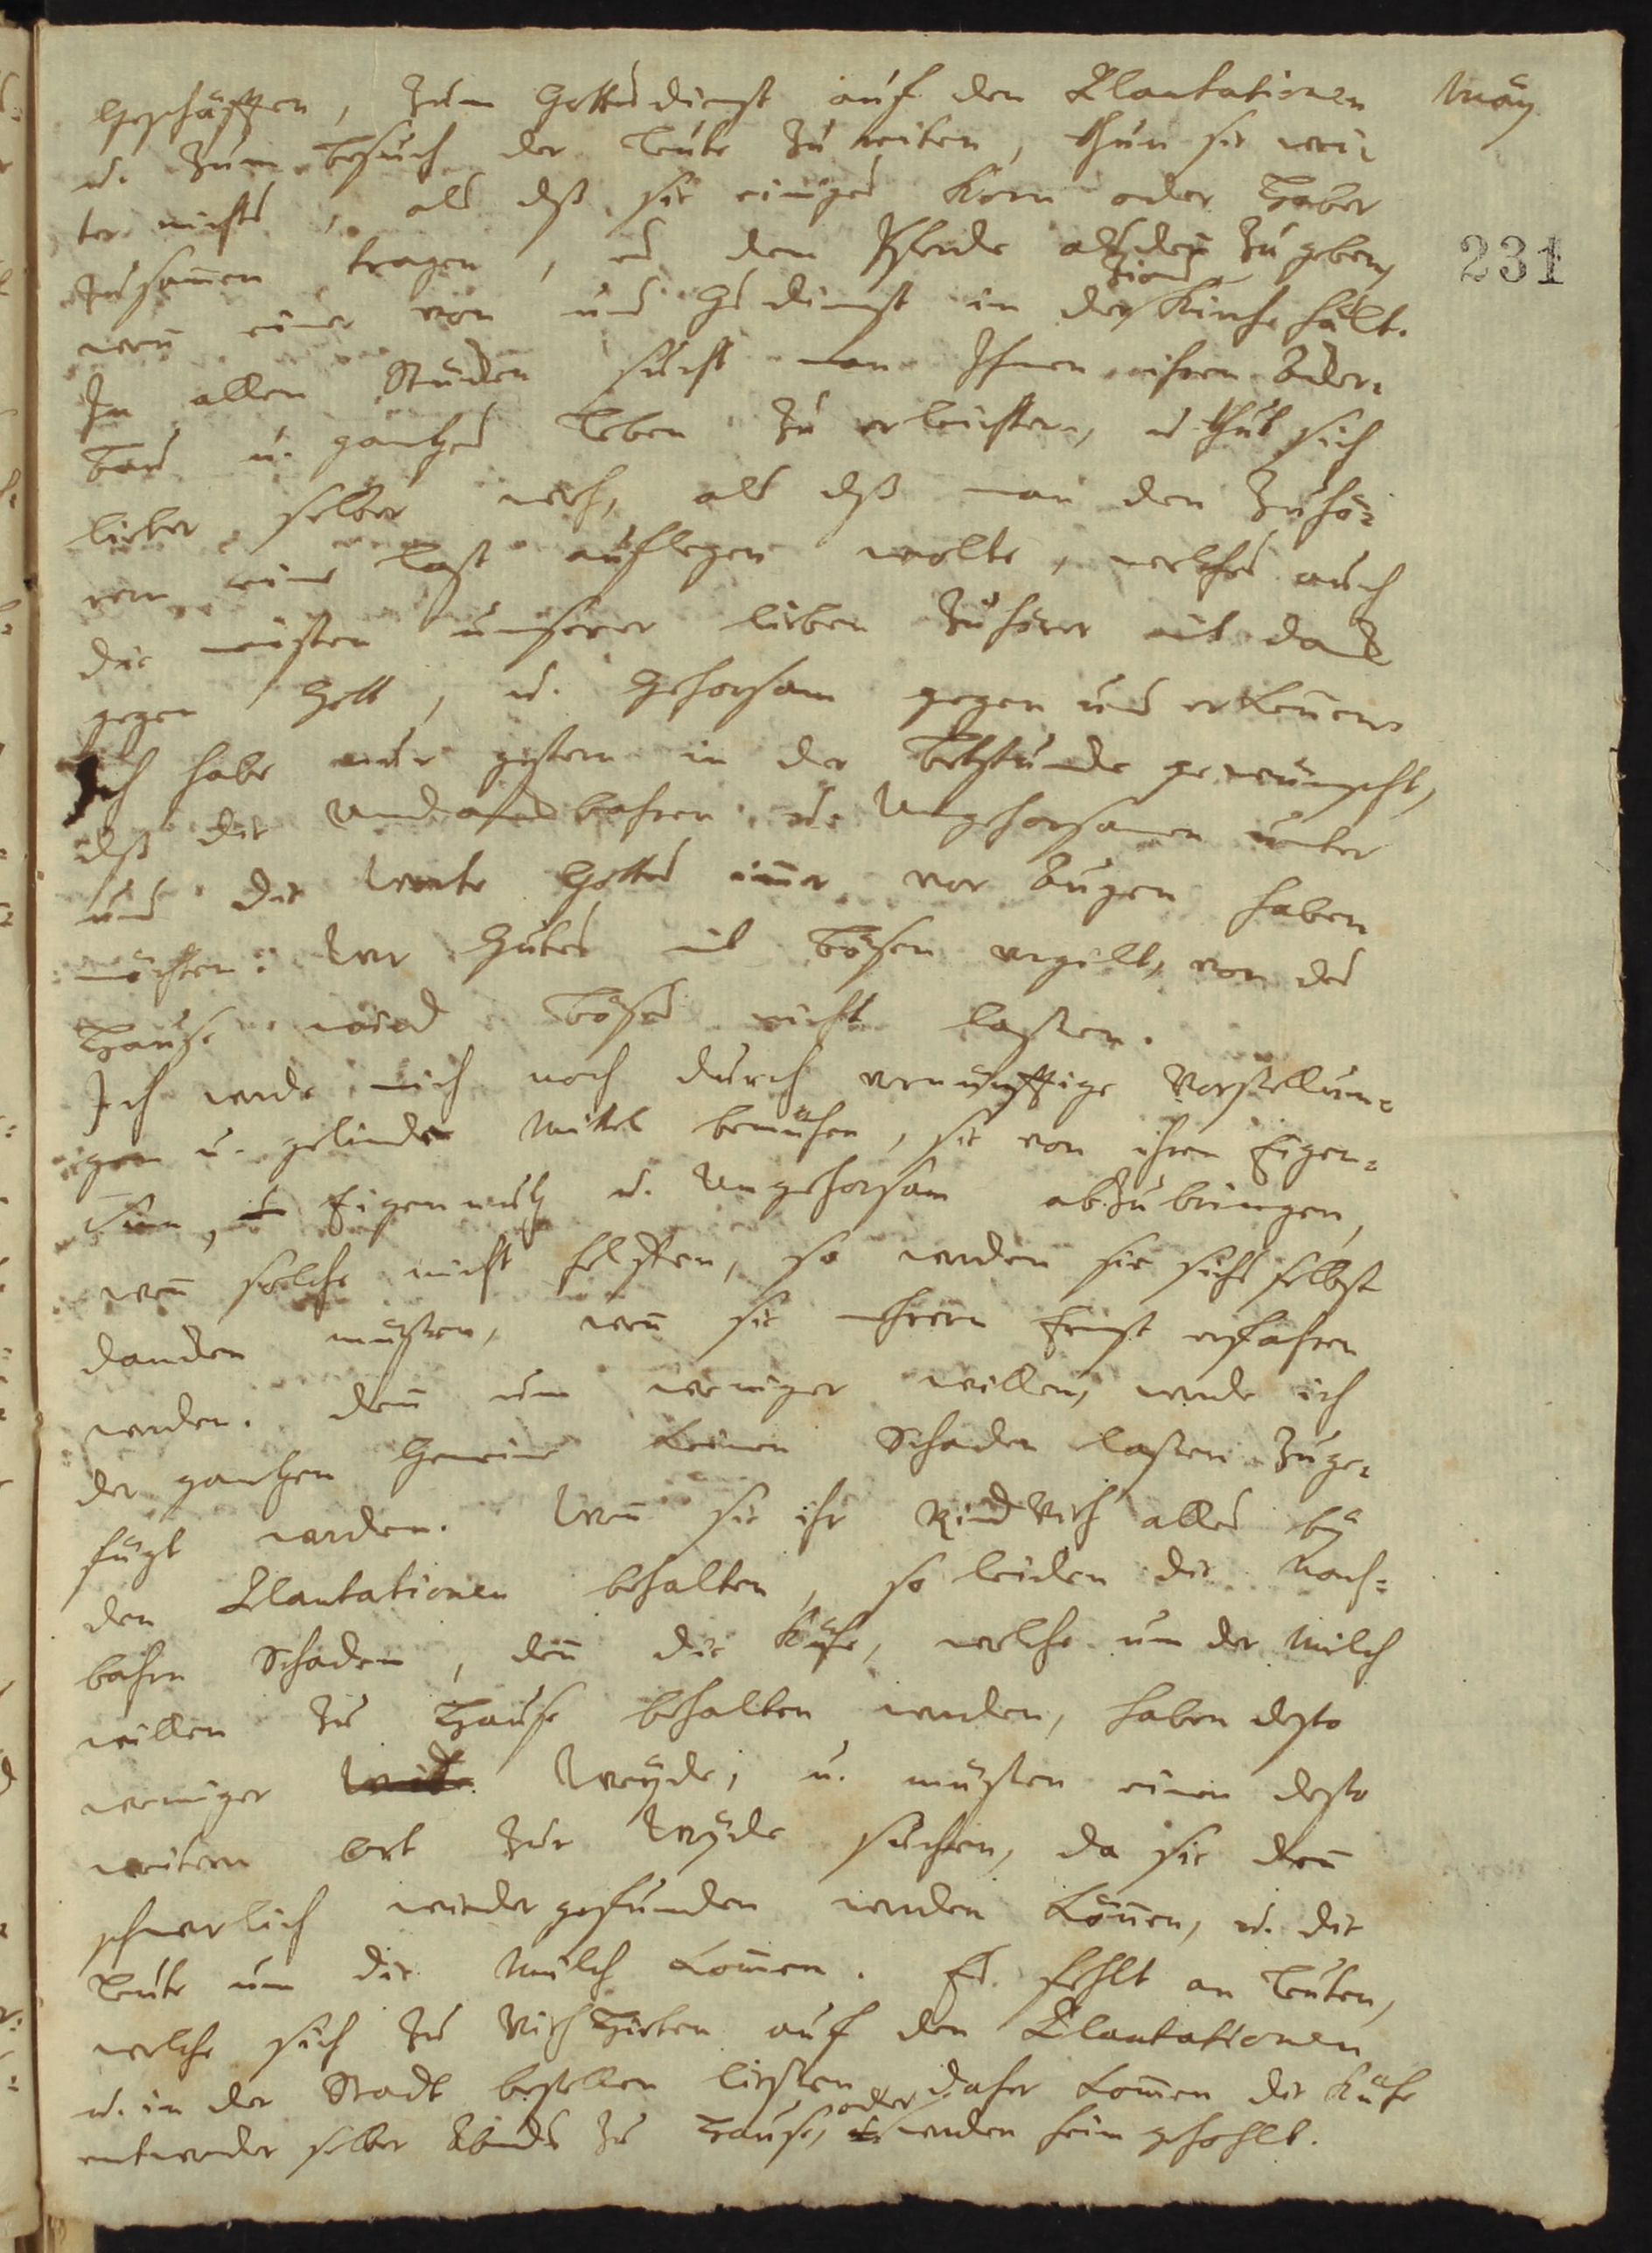 Geschäfften, zum Gottesdienst auf den Plantationen
May
u. zum Besuch der Leute zu reiten, thun sie wei=
ter nichts, als dß sie einiges Korn oder Haber
231
zusam̄en tragen, es dem Pferde alsden̄ zu geben,
Zions
wen̄ einer von uns Gdienst in der Kirche hält.
In allen Stücken sucht man Ihnen ihren Acker=
bau u. gantzes Leben zu erleichtern, u. thut sich
lieber selber weh, als dß man den Zuhö=
rern eine Last auflegen wolte, welches auch
die meisten unserer lieben Zuhörer mit Danck
gegen Gott, u. Gehorsam gegen uns erken̄en.
Ich habe nur gestern in der Betstunde gewünscht,
dß die Undanckbahren u. Ungehorsamen unter
uns die Worte Gottes im̄er vor Augen haben
möchten: Wer Gutes mit Bösen vergilt, von des
Hause wird Böses nicht lassen.
Ich werde mich noch durch vernünfftige Vorstellun=
gen u. gelinde Mittel bemühen, sie von ihren Eigen=
Sinn, Eigennutz u. Ungehorsam abzubringen,
wen̄ solche nicht helffen, so werden sie sichs selbst
dancken müssen, wen̄ sie mehrern Ernst erfahren
werden. Den̄ um weniger willen, werde ich
der gantzen Gemeine keinen Schaden lassen zuge=
fügt werden. Wen̄ sie ihr Rind Vieh alles bey
den Plantationen behalten, so leiden die Nach=
bahrn Schaden, den̄ die Kühe, welche um der Milch
willen zu Hause behalten werden, haben desto
weniger Weyde, u. müssen einen desto
weitern Ort zur Weyde suchen, da sie den̄
schwerlich wieder gefunden werden kön̄en, u. die
Leute um die Milch kom̄en. Es fehlt an Leuten,
welche sich zu Vieh Hirten auf den Plantationen
u. in der Stadt bestellen liessen, daher kom̄en die Kühe
oder
entweder selber Abends zu Hause, werden heim gehohlt.